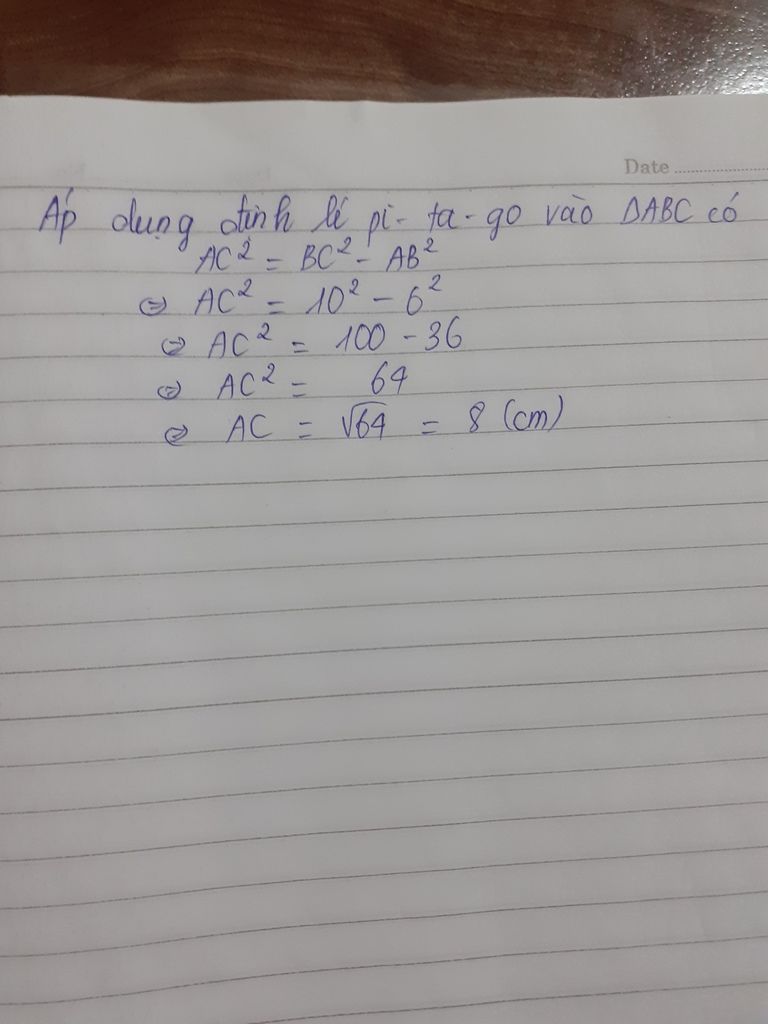 Date
Áp dụng định lí pi-ta-go vào ΔABC có
AC² = BC² - AB²
⇔ AC² = 10² - 6²
⇔ AC² = 100 - 36
⇔ AC² = 64
⇔ AC = √64 = 8 (cm)